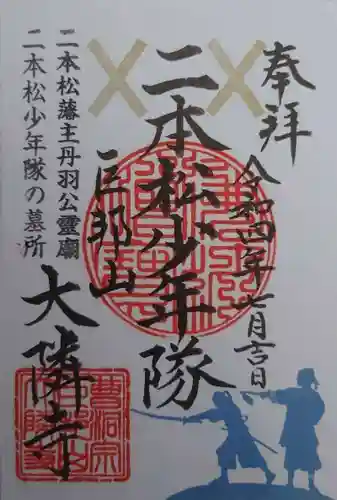 奉拝
令和四年七月吉日
二本松少年隊
巨邦山
二本松藩主丹羽公霊廟
二本松少年隊の墓所
大隣寺
曹洞宗